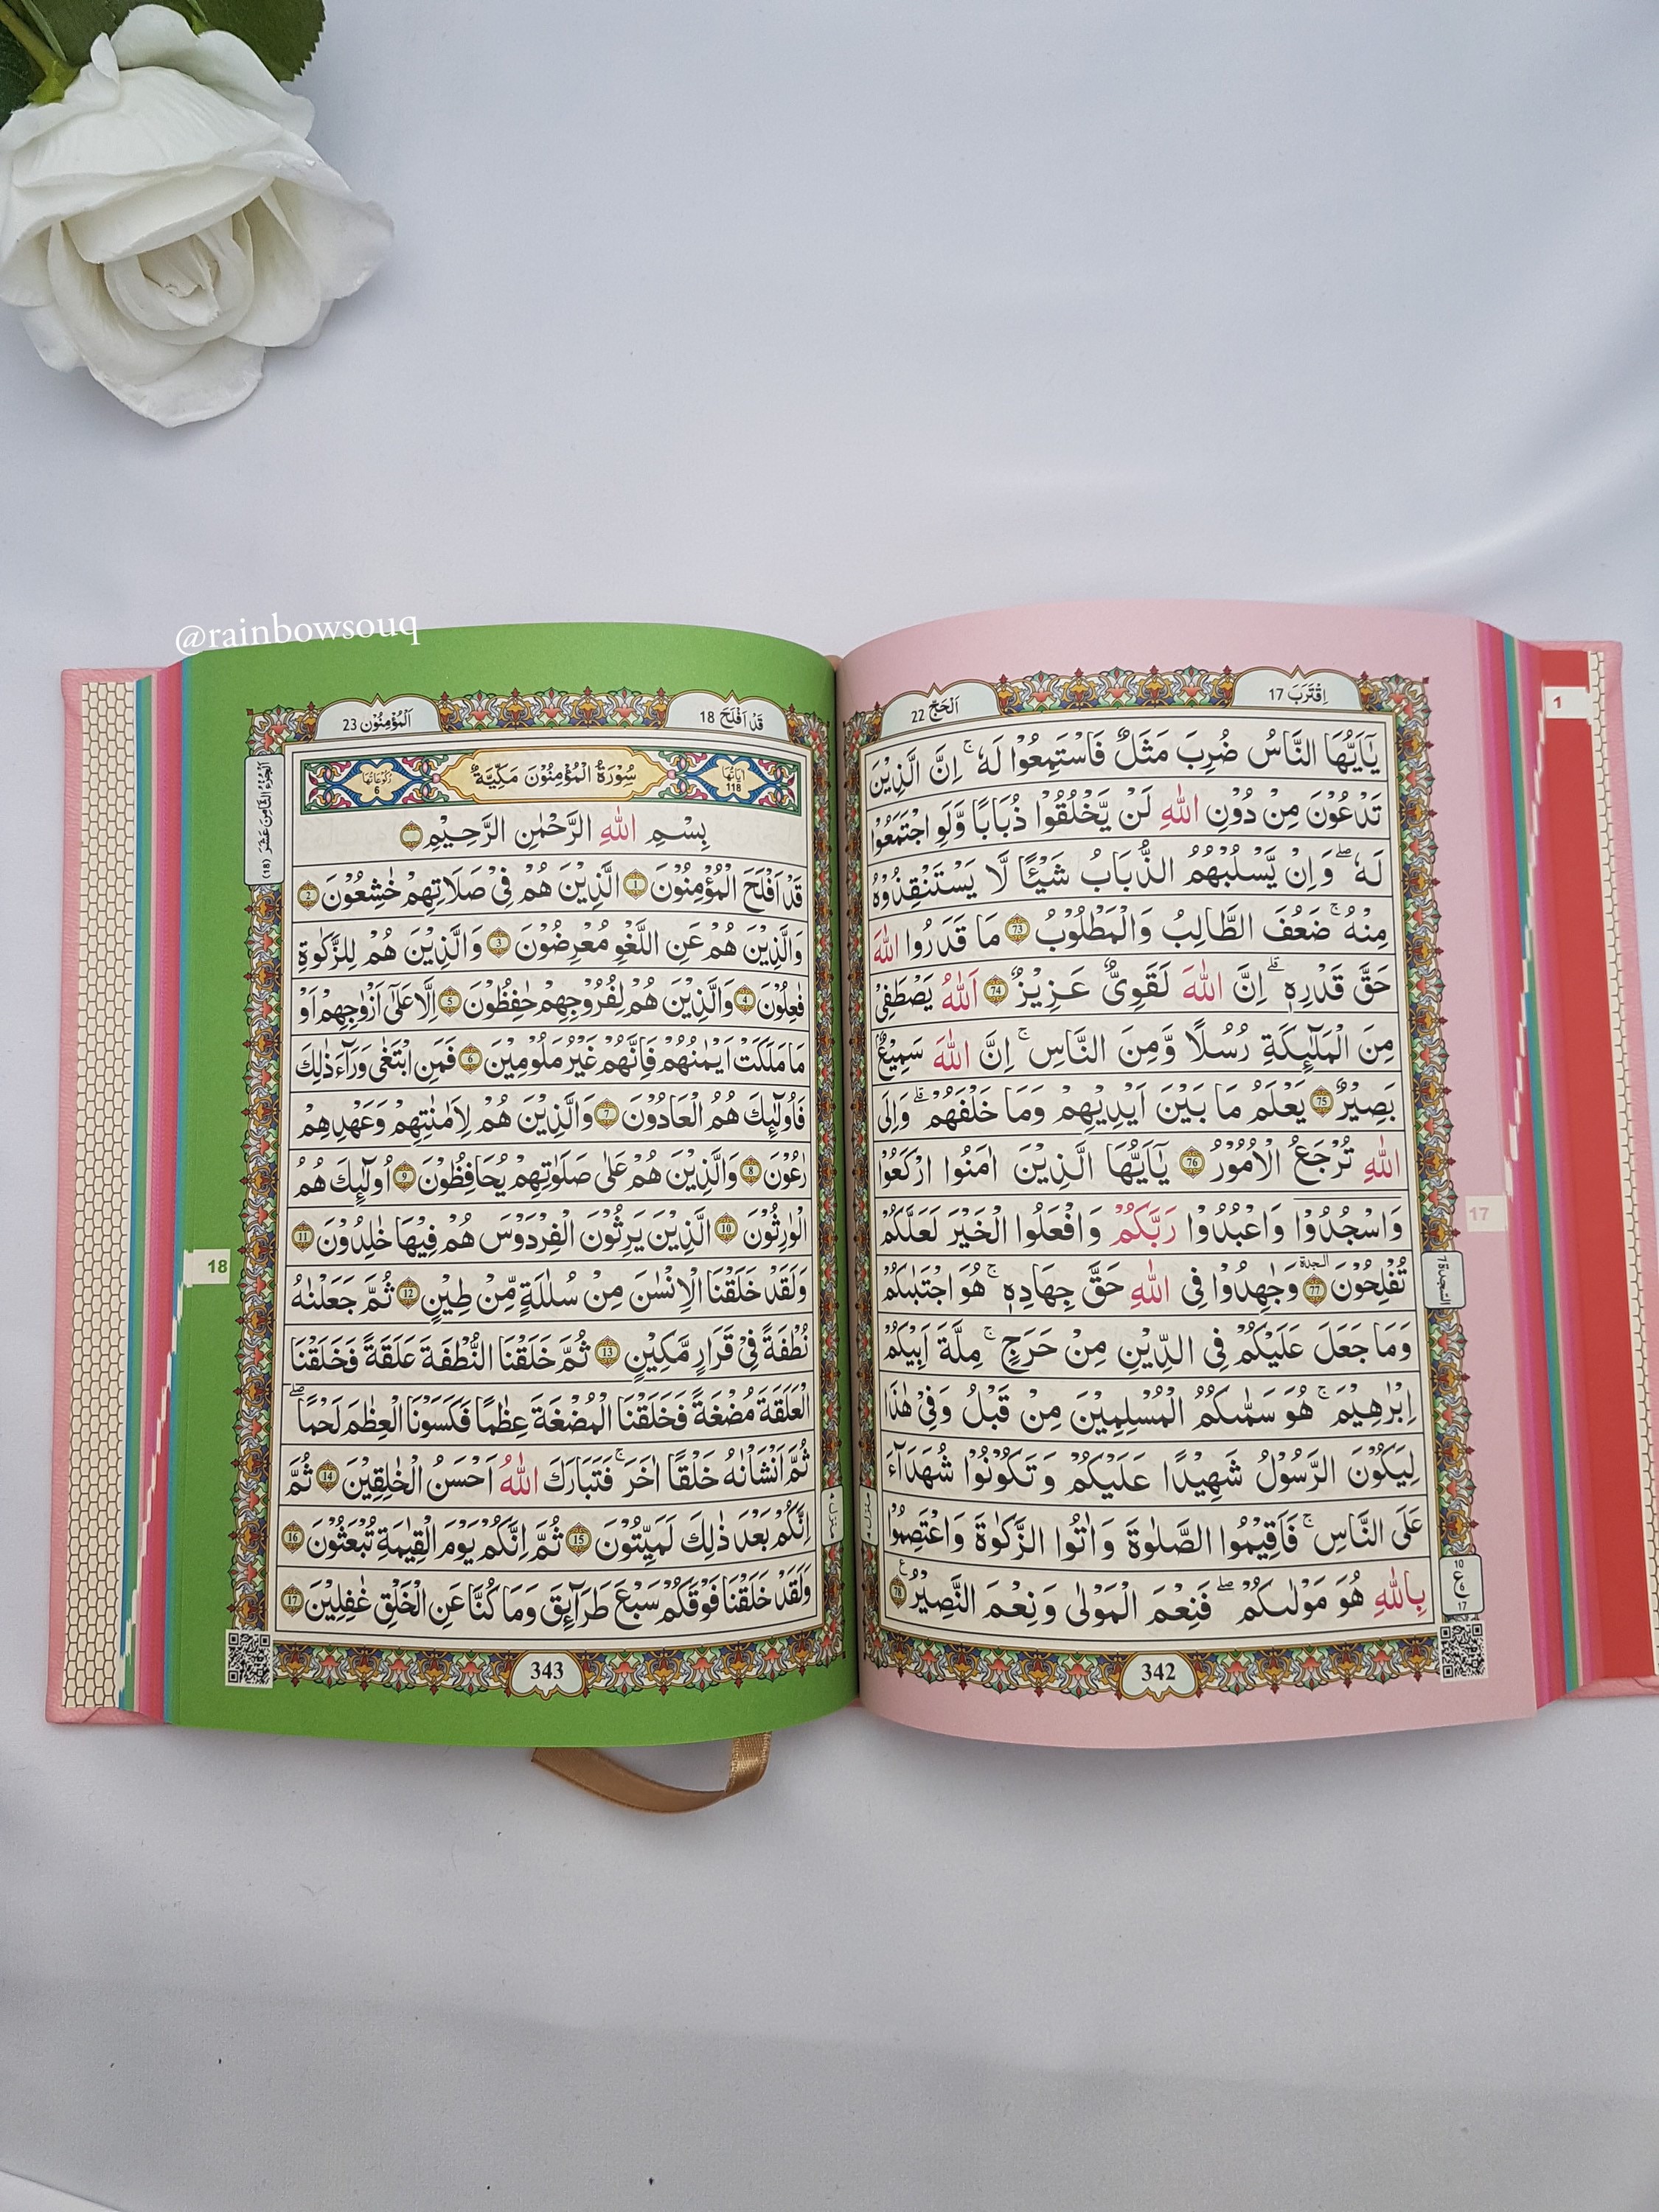 @rainbowsouq
اِقْتَرَبَ 17
اَلْحَجّ 22
يٰٓاَيُّهَا النَّاسُ ضُرِبَ مَثَلٌ فَاسْتَمِعُوْا لَهٗ ؕ اِنَّ الَّذِيْنَ
تَدْعُوْنَ مِنْ دُوْنِ اللّٰهِ لَنْ يَّخْلُقُوْا ذُبَابًا وَّلَوِ اجْتَمَعُوْا
لَهٗ ؕ وَاِنْ يَّسْلُبْهُمُ الذُّبَابُ شَيْـًٔا لَّا يَسْتَنْقِذُوْهُ
مِنْهُ ؕ ضَعُفَ الطَّالِبُ وَالْمَطْلُوْبُ 73 مَا قَدَرُوا اللّٰهَ
حَقَّ قَدْرِهٖ ؕ اِنَّ اللّٰهَ لَقَوِيٌّ عَزِيْزٌ 74 اَللّٰهُ يَصْطَفِيْ
مِنَ الْمَلٰٓئِكَةِ رُسُلًا وَّمِنَ النَّاسِ ؕ اِنَّ اللّٰهَ سَمِيْعٌۢ
بَصِيْرٌ 75 يَعْلَمُ مَا بَيْنَ اَيْدِيْهِمْ وَمَا خَلْفَهُمْ ؕ وَاِلَى
اللّٰهِ تُرْجَعُ الْاُمُوْرُ 76 يٰٓاَيُّهَا الَّذِيْنَ اٰمَنُوا ارْكَعُوْا
وَاسْجُدُوْا وَاعْبُدُوْا رَبَّكُمْ وَافْعَلُوا الْخَيْرَ لَعَلَّكُمْ
تُفْلِحُوْنَ 77 وَجٰهِدُوْا فِى اللّٰهِ حَقَّ جِهَادِهٖ ؕ هُوَ اجْتَبٰىكُمْ
وَمَا جَعَلَ عَلَيْكُمْ فِى الدِّيْنِ مِنْ حَرَجٍ ؕ مِلَّةَ اَبِيْكُمْ
اِبْرٰهِيْمَ ؕ هُوَ سَمّٰىكُمُ الْمُسْلِمِيْنَ مِنْ قَبْلُ وَفِيْ هٰذَا
لِيَكُوْنَ الرَّسُوْلُ شَهِيْدًا عَلَيْكُمْ وَتَكُوْنُوْا شُهَدَآءَ
عَلَى النَّاسِ ؕ فَاَقِيْمُوا الصَّلٰوةَ وَاٰتُوا الزَّكٰوةَ وَاعْتَصِمُوْا
بِاللّٰهِ هُوَ مَوْلٰىكُمْ ؕ فَنِعْمَ الْمَوْلٰى وَنِعْمَ النَّصِيْرُ 78
1
17
السجدة ٧
10
ع
17
342
قَدْ اَفْلَحَ 18
اَلْمُؤْمِنُوْن 23
اَلْجُزْءُ الثَّامِنَ عَشَرَ (18)
اٰيَاتُهَا 118
سُوْرَةُ الْمُؤْمِنُوْنَ مَكِّيَّةٌ
رُكُوْعَاتُهَا 6
بِسْمِ اللّٰهِ الرَّحْمٰنِ الرَّحِيْمِ
قَدْ اَفْلَحَ الْمُؤْمِنُوْنَ 1 الَّذِيْنَ هُمْ فِيْ صَلَاتِهِمْ خٰشِعُوْنَ 2
وَالَّذِيْنَ هُمْ عَنِ اللَّغْوِ مُعْرِضُوْنَ 3 وَالَّذِيْنَ هُمْ لِلزَّكٰوةِ
فٰعِلُوْنَ 4 وَالَّذِيْنَ هُمْ لِفُرُوْجِهِمْ حٰفِظُوْنَ 5 اِلَّا عَلٰٓى اَزْوٰجِهِمْ اَوْ
مَا مَلَكَتْ اَيْمٰنُهُمْ فَاِنَّهُمْ غَيْرُ مَلُوْمِيْنَ 6 فَمَنِ ابْتَغٰى وَرَآءَ ذٰلِكَ
فَاُولٰٓئِكَ هُمُ الْعَادُوْنَ 7 وَالَّذِيْنَ هُمْ لِاَمٰنٰتِهِمْ وَعَهْدِهِمْ
رٰعُوْنَ 8 وَالَّذِيْنَ هُمْ عَلٰى صَلَوٰتِهِمْ يُحَافِظُوْنَ 9 اُولٰٓئِكَ هُمُ
الْوٰرِثُوْنَ 10 الَّذِيْنَ يَرِثُوْنَ الْفِرْدَوْسَ هُمْ فِيْهَا خٰلِدُوْنَ 11
وَلَقَدْ خَلَقْنَا الْاِنْسٰنَ مِنْ سُلٰلَةٍ مِّنْ طِيْنٍ 12 ثُمَّ جَعَلْنٰهُ
نُطْفَةً فِيْ قَرَارٍ مَّكِيْنٍ 13 ثُمَّ خَلَقْنَا النُّطْفَةَ عَلَقَةً فَخَلَقْنَا
الْعَلَقَةَ مُضْغَةً فَخَلَقْنَا الْمُضْغَةَ عِظٰمًا فَكَسَوْنَا الْعِظٰمَ لَحْمًا
ثُمَّ اَنْشَاْنٰهُ خَلْقًا اٰخَرَ ؕ فَتَبَارَكَ اللّٰهُ اَحْسَنُ الْخٰلِقِيْنَ 14 ثُمَّ
اِنَّكُمْ بَعْدَ ذٰلِكَ لَمَيِّتُوْنَ 15 ثُمَّ اِنَّكُمْ يَوْمَ الْقِيٰمَةِ تُبْعَثُوْنَ 16
وَلَقَدْ خَلَقْنَا فَوْقَكُمْ سَبْعَ طَرَآئِقَ وَمَا كُنَّا عَنِ الْخَلْقِ غٰفِلِيْنَ 17
18
343